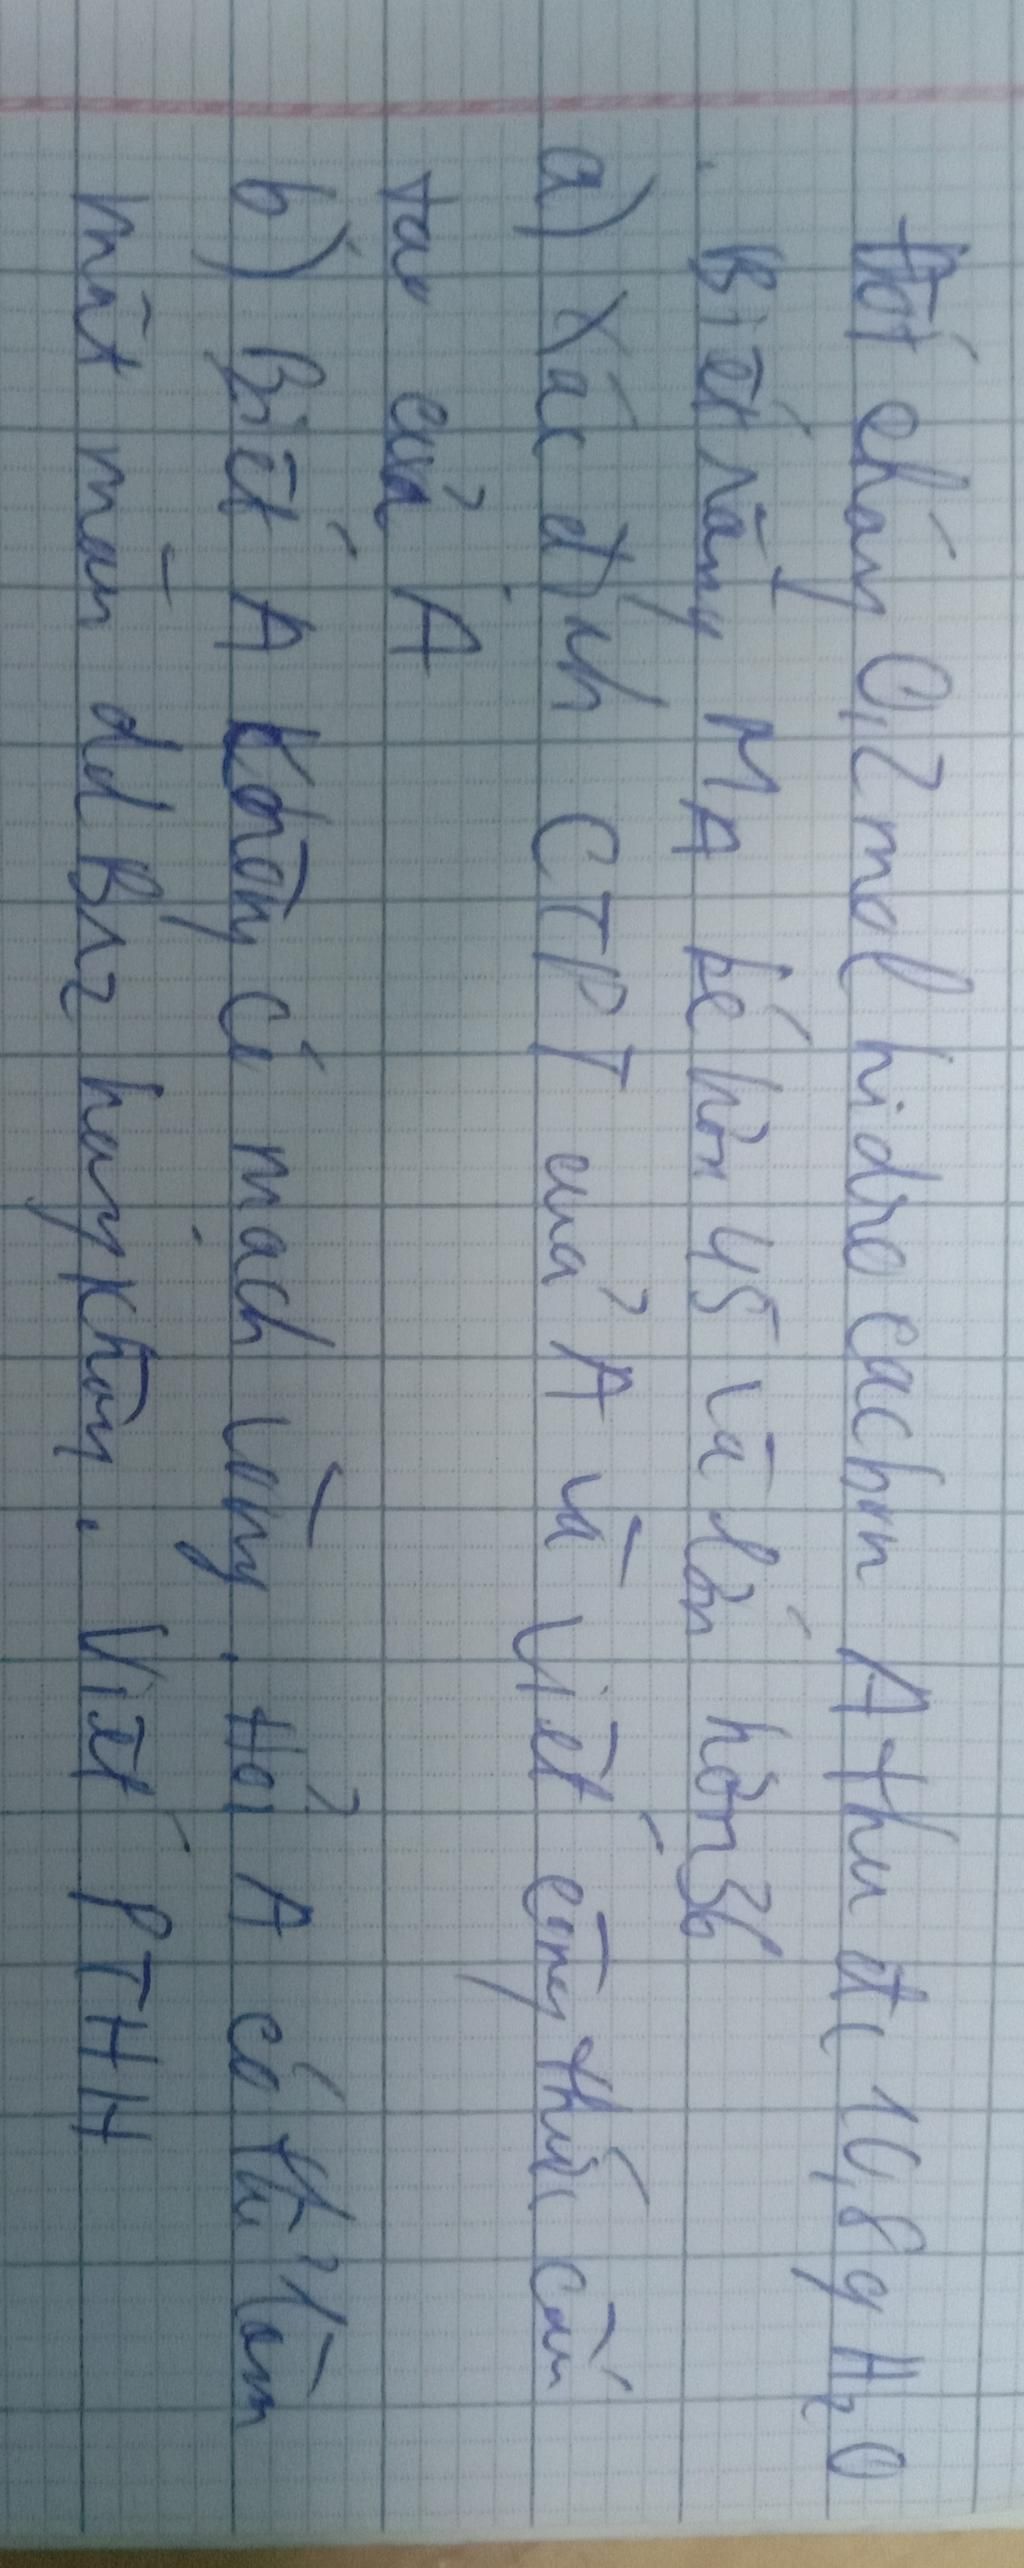 Đốt cháy 0,2 mol hidro cacbon A thu đc 10,8g H2O
. Biết rằng MA bé hơn 45 và lớn hơn 36
a) Xác định CTPT của A và Viết công thức cấu
tạo của A
b) Biết A không có mạch vòng. Hỏi A có thể làm
mất màu dd Br2 hay không. Viết PTHH